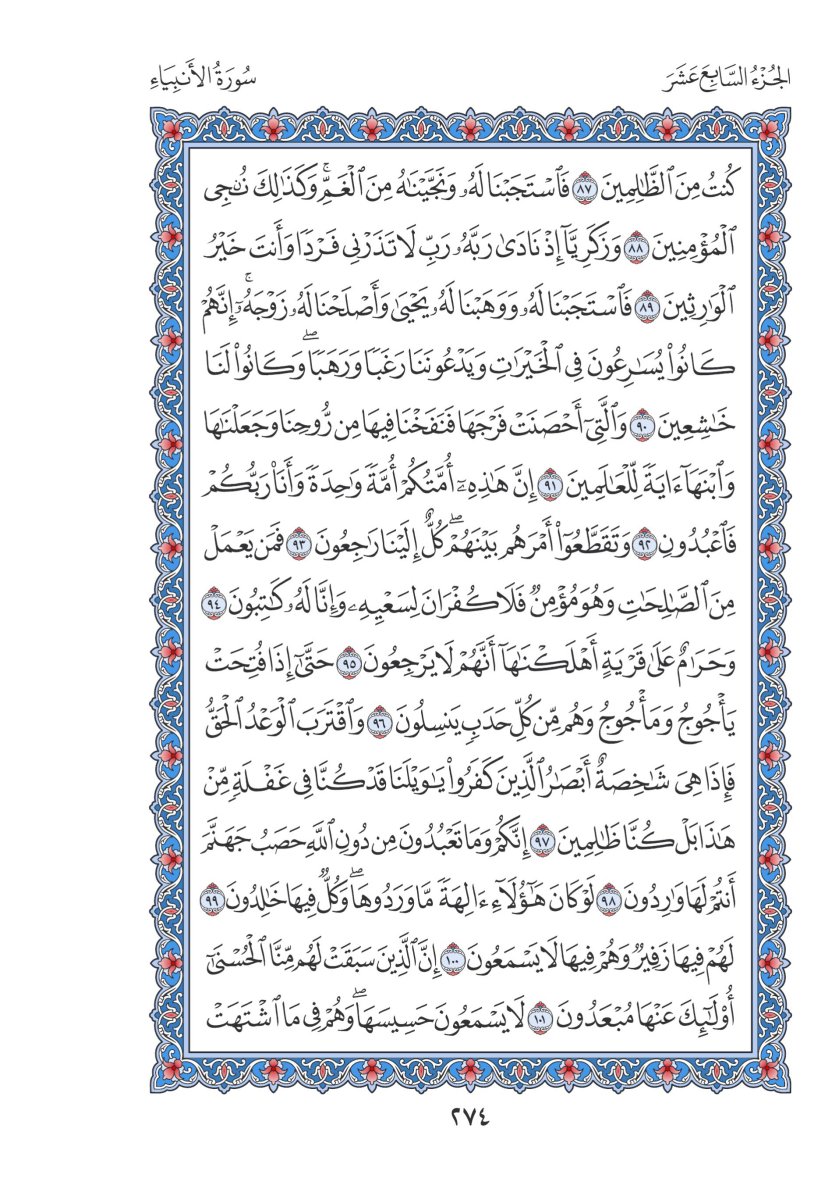 الجُزْءُ السَّابِعَ عَشَرَ
سُورَةُ الأَنبِيَاءِ
كُنتُ مِنَ ٱلظَّٰلِمِينَ ٨٧ فَٱسْتَجَبْنَا لَهُۥ وَنَجَّيْنَٰهُ مِنَ ٱلْغَمِّۚ وَكَذَٰلِكَ نُۨجِي
ٱلْمُؤْمِنِينَ ٨٨ وَزَكَرِيَّآ إِذْ نَادَىٰ رَبَّهُۥ رَبِّ لَا تَذَرْنِي فَرْدًا وَأَنتَ خَيْرُ
ٱلْوَٰرِثِينَ ٨٩ فَٱسْتَجَبْنَا لَهُۥ وَوَهَبْنَا لَهُۥ يَحْيَىٰ وَأَصْلَحْنَا لَهُۥ زَوْجَهُۥٓۚ إِنَّهُمْ
كَانُوا۟ يُسَٰرِعُونَ فِي ٱلْخَيْرَٰتِ وَيَدْعُونَنَا رَغَبًا وَرَهَبًاۖ وَكَانُوا۟ لَنَا
خَٰشِعِينَ ٩٠ وَٱلَّتِيٓ أَحْصَنَتْ فَرْجَهَا فَنَفَخْنَا فِيهَا مِن رُّوحِنَا وَجَعَلْنَٰهَا
وَٱبْنَهَآ ءَايَةً لِّلْعَٰلَمِينَ ٩١ إِنَّ هَٰذِهِۦٓ أُمَّتُكُمْ أُمَّةً وَٰحِدَةً وَأَنَا۠ رَبُّكُمْ
فَٱعْبُدُونِ ٩٢ وَتَقَطَّعُوٓا۟ أَمْرَهُم بَيْنَهُمْۖ كُلٌّ إِلَيْنَا رَٰجِعُونَ ٩٣ فَمَن يَعْمَلْ
مِنَ ٱلصَّٰلِحَٰتِ وَهُوَ مُؤْمِنٌ فَلَا كُفْرَانَ لِسَعْيِهِۦ وَإِنَّا لَهُۥ كَٰتِبُونَ ٩٤
وَحَرَٰمٌ عَلَىٰ قَرْيَةٍ أَهْلَكْنَٰهَآ أَنَّهُمْ لَا يَرْجِعُونَ ٩٥ حَتَّىٰٓ إِذَا فُتِحَتْ
يَأْجُوجُ وَمَأْجُوجُ وَهُم مِّن كُلِّ حَدَبٍ يَنسِلُونَ ٩٦ وَٱقْتَرَبَ ٱلْوَعْدُ ٱلْحَقُّ
فَإِذَا هِيَ شَٰخِصَةٌ أَبْصَٰرُ ٱلَّذِينَ كَفَرُوا۟ يَٰوَيْلَنَا قَدْ كُنَّا فِي غَفْلَةٍ مِّنْ
هَٰذَا بَلْ كُنَّا ظَٰلِمِينَ ٩٧ إِنَّكُمْ وَمَا تَعْبُدُونَ مِن دُونِ ٱللَّهِ حَصَبُ جَهَنَّمَ
أَنتُمْ لَهَا وَٰرِدُونَ ٩٨ لَوْ كَانَ هَٰٓؤُلَآءِ ءَالِهَةً مَّا وَرَدُوهَاۖ وَكُلٌّ فِيهَا خَٰلِدُونَ ٩٩
لَهُمْ فِيهَا زَفِيرٌ وَهُمْ فِيهَا لَا يَسْمَعُونَ ١٠٠ إِنَّ ٱلَّذِينَ سَبَقَتْ لَهُم مِّنَّا ٱلْحُسْنَىٰٓ
أُو۟لَٰٓئِكَ عَنْهَا مُبْعَدُونَ ١٠١ لَا يَسْمَعُونَ حَسِيسَهَاۖ وَهُمْ فِي مَا ٱشْتَهَتْ
٢٧٤